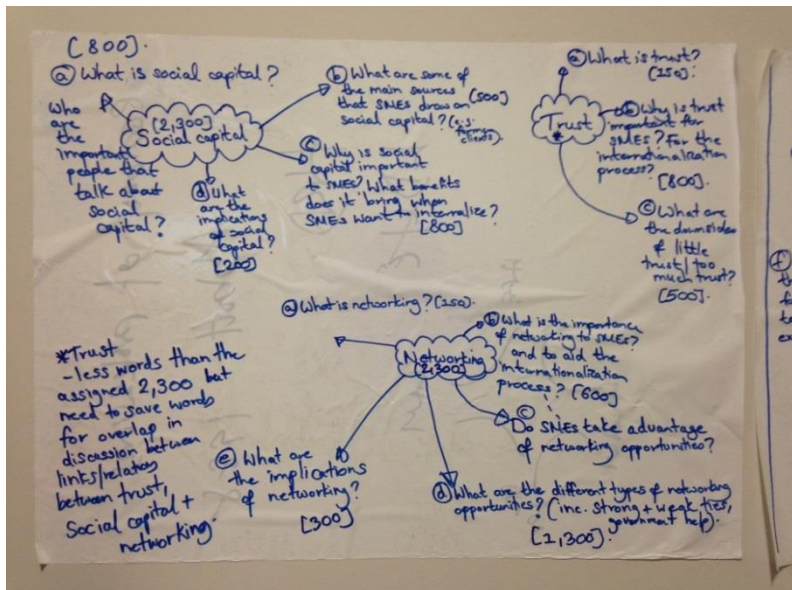 [800].
ⓐ What is social capital?
Who
are
the
important
people that
talk about
social
capital?
[2,300]
Social capital
ⓑ What are some of
the main sources [500]
that SMEs draw on
social capital? (e.g.
former
clients).
ⓒ Why is social
capital important
to SMEs? What benefits
does it bring when
SMEs want to internalize?
[800]
ⓓ What
are the
implications
of social
capital?
[200]
ⓐ What is trust?
[150].
Trust
*
ⓑ Why is trust
important for
SMEs? For the
internationalization
process?
[800].
ⓒ What are
the downsides
of little
trust/too
much trust?
[500].
ⓐ What is networking? [150].
Networking
[2,300]
ⓑ What is the importance
of networking to SMEs?
and to aid the
internationalization
process? [600]
ⓒ
Do SMEs take advantage
of networking opportunities?
ⓓ What are the different types of networking
opportunities? (inc. strong + weak ties,
government help).
[1,300].
ⓔ What are
the implications
of networking?
[300]
*Trust
- less words than the
assigned 2,300 but
need to save words
for overlap in
discussion between
links/relations
between trust,
Social capital +
networking.
ⓕ